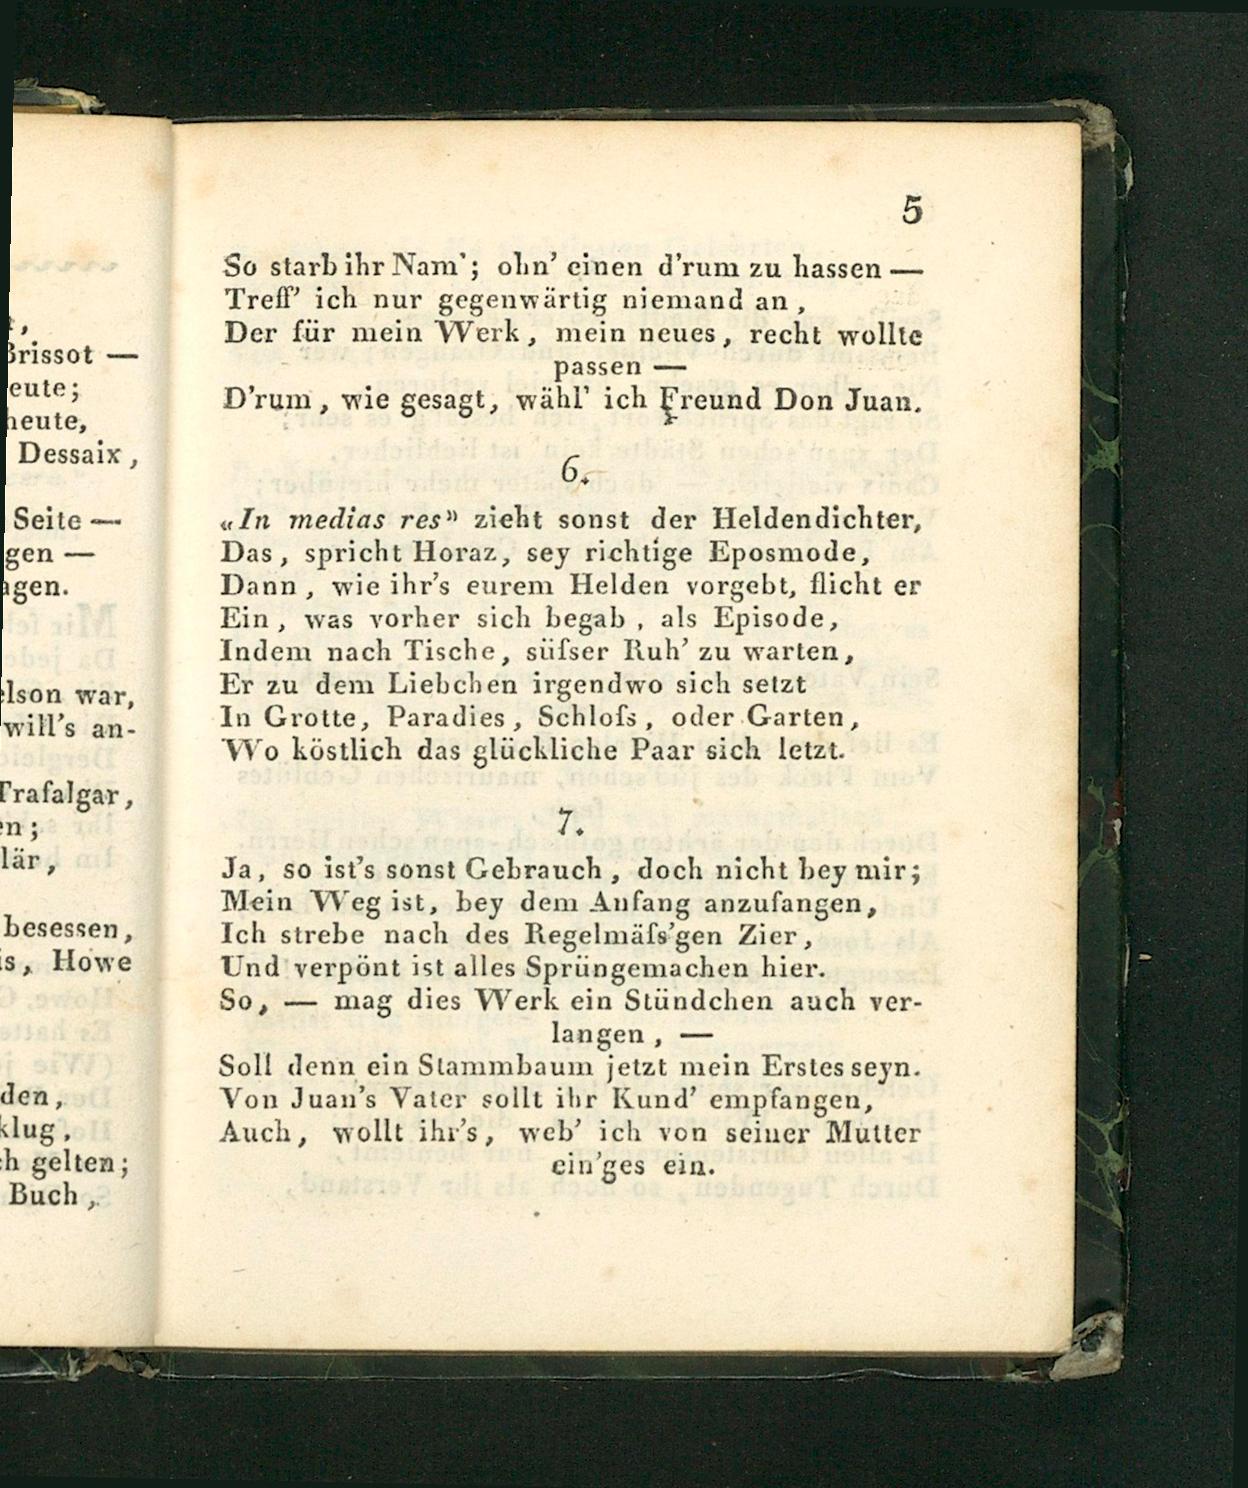 Brissot —
eute;
heute,
Dessaix,
Seite —
gen —
agen.
elson war,
will's an-
Trafalgar,
en;
lär,
besessen,
is, Howe
den,
klug,
h gelten;
Buch,
5
So starb ihr Nam'; ohn' einen d'rum zu hassen —
Treff' ich nur gegenwärtig niemand an,
Der für mein Werk, mein neues, recht wollte
passen —
D'rum, wie gesagt, wähl' ich Freund Don Juan.
6.
«In medias res» zieht sonst der Heldendichter,
Das, spricht Horaz, sey richtige Eposmode,
Dann, wie ihr's eurem Helden vorgebt, flicht er
Ein, was vorher sich begab, als Episode,
Indem nach Tische, süſser Ruh' zu warten,
Er zu dem Liebchen irgendwo sich setzt
In Grotte, Paradies, Schloſs, oder Garten,
Wo köstlich das glückliche Paar sich letzt.
7.
Ja, so ist's sonst Gebrauch, doch nicht bey mir;
Mein Weg ist, bey dem Anfang anzufangen,
Ich strebe nach des Regelmäſs'gen Zier,
Und verpönt ist alles Sprüngemachen hier.
So, — mag dies Werk ein Stündchen auch ver-
langen, —
Soll denn ein Stammbaum jetzt mein Erstes seyn.
Von Juan's Vater sollt ihr Kund' empfangen,
Auch, wollt ihr's, web' ich von seiner Mutter
ein'ges ein.